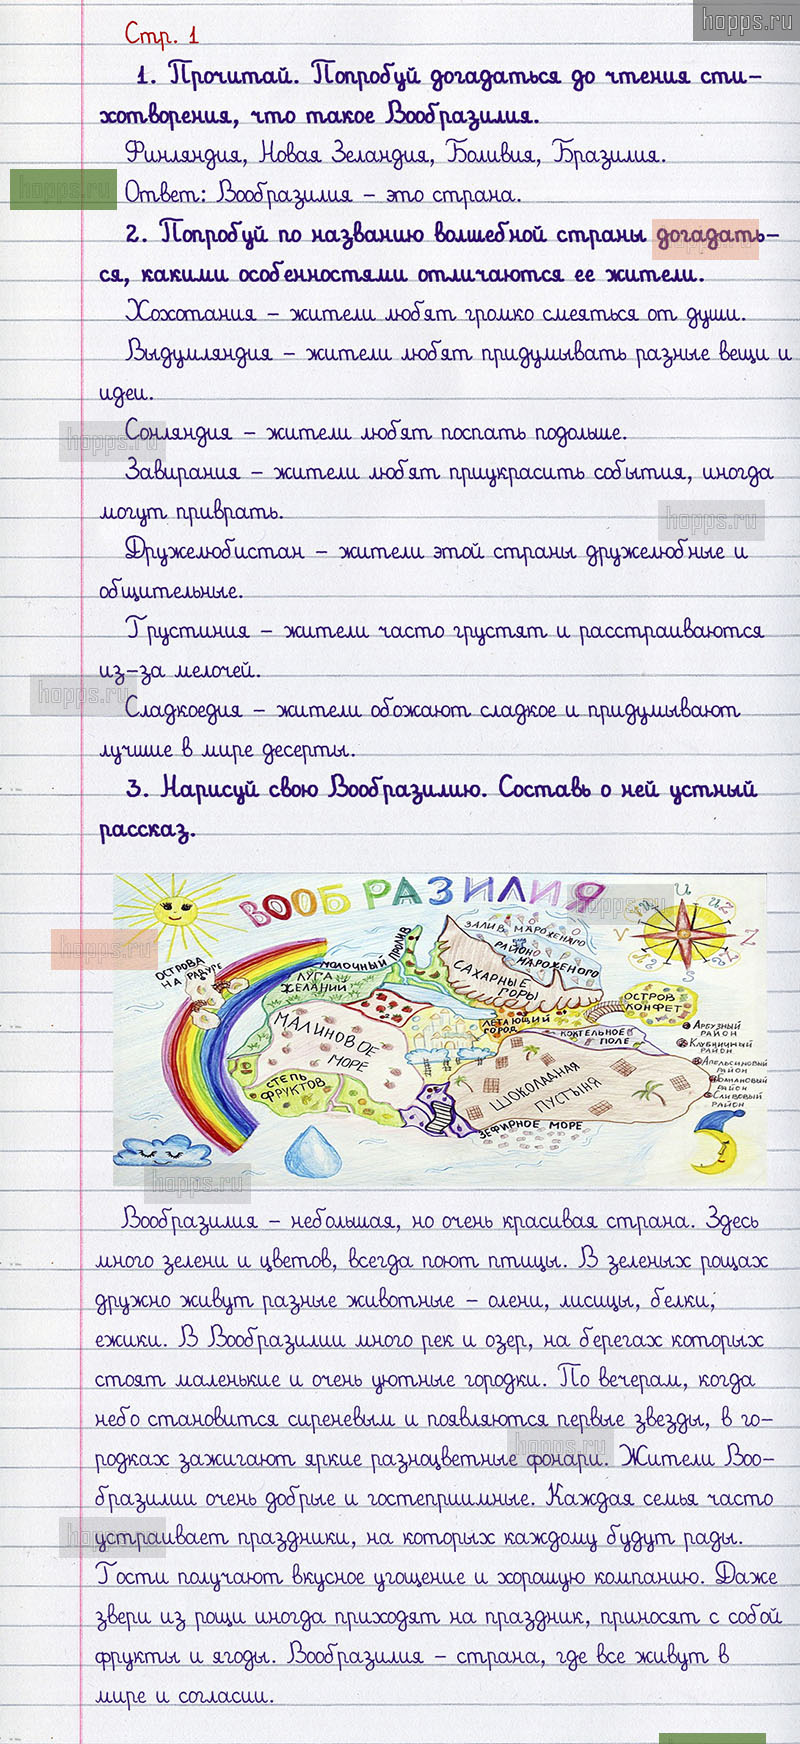 hopps.ru
Стр. 1
1. Прочитай. Попробуй догадаться до чтения сти-
хотворения, что такое Вообразилия.
Финляндия, Новая Зеландия, Боливия, Бразилия.
hopps.ru
Ответ: Вообразилия – это страна.
2. Попробуй по названию волшебной страны догадать-
ся, какими особенностями отличаются ее жители.
Хохотания – жители любят громко смеяться от души.
Выдумляндия – жители любят придумывать разные вещи и
идеи.
hopps.ru
Сонляндия – жители любят поспать подольше.
Завирания – жители любят приукрасить события, иногда
могут приврать.
hopps.ru
Дружелюбистан – жители этой страны дружелюбные и
общительные.
Грустиния – жители часто грустят и расстраиваются
из-за мелочей.
hopps.ru
Сладкоедия – жители обожают сладкое и придумывают
лучшие в мире десерты.
3. Нарисуй свою Вообразилию. Составь о ней устный
рассказ.
ВООБРАЗИЛИЯ
hopps.ru
hopps.ru
ОСТРОВА
НА РАДУГЕ
МОЛОЧНЫЙ ПРОЛИВ
ЛУГА
ЖЕЛАНИЙ
ЗАЛИВ МАРОЖЕНАГО
РАЙОНО
МАРОЖЕНОГО
САХАРНЫЕ
ГОРЫ
МАЛИНОВОЕ
МОРЕ
ЛЕТАЮЩИЙ
ГОРОД
ОСТРОВ
КОНФЕТ
КОКТЕЛЬНОЕ
ПОЛЕ
АРБУЗНЫЙ
РАЙОН
КЛУБНИЧНЫЙ
РАЙОН
АПЕЛЬСИНОВЫЙ
РАЙОН
РАЙОН
СЛИВОВЫЙ
РАЙОН
СТЕПЬ
ФРУКТОВ
ШОКОЛАДНАЯ
ПУСТЫНЯ
ЗЕФИРНОЕ МОРЕ
hopps.ru
Вообразилия – небольшая, но очень красивая страна. Здесь
много зелени и цветов, всегда поют птицы. В зеленых рощах
дружно живут разные животные – олени, лисицы, белки,
ежики. В Вообразилии много рек и озер, на берегах которых
стоят маленькие и очень уютные городки. По вечерам, когда
небо становится сиреневым и появляются первые звезды, в го-
родках зажигают яркие разноцветные фонари. Жители Воо-
hopps.ru
бразилии очень добрые и гостеприимные. Каждая семья часто
устраивает праздники, на которых каждому будут рады.
hopps.ru
Гости получают вкусное угощение и хорошую компанию. Даже
звери из рощи иногда приходят на праздник, приносят с собой
фрукты и ягоды. Вообразилия – страна, где все живут в
мире и согласии.